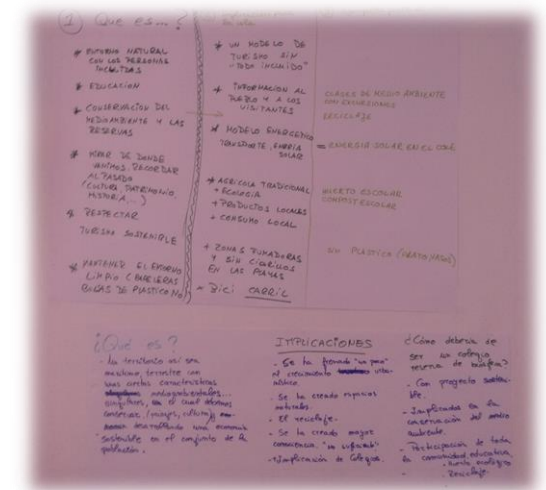 1) Que es...?
* ENTORNO NATURAL
CON LAS PERSONAS
INCLUIDAS
* EDUCACION
* CONSERVACIÓN DEL
MEDIOAMBIENTE Y LAS
RESERVAS
* MIRAR DE DONDE
VENIMOS, RECORDAR
AL PASADO
(CULTURA, PATRIMONIO,
HISTORIA,...)
* RESPECTAR
TURISMO SOSTENIBLE
* MANTENER EL ENTORNO
LIMPIO
BOLSAS DE PLASTICO NO
* UN MODELO DE
TURISMO SIN
"TODO INCLUIDO"
* INFORMACION AL
PUEBLO Y A LOS
VISITANTES
* MODELO ENERGETICO
TRANSPORTE, ENERGIA
SOLAR
* AGRICOLA TRADICIONAL
+ ECOLOGIA
+ PRODUCTOS LOCALES
+ CONSUMO LOCAL
+ ZONAS FUMADORAS
Y SIN CIGARILLOS
EN LAS PLAYAS
- BICI CARRIL
CLASES DE MEDIO AMBIENTE
CON EXCURSIONES
RECICLAJE
ENERGIA SOLAR EN EL COLE
HUERTO ESCOLAR
COMPOST ESCOLAR
SIN PLASTICO
¿Qué es?
- Un territorio
marítimo, terrestre con
unas ciertas características
medioambientales...
en el cual debemos
conservar
desarrollando una economía
sostenible en el conjunto de la
población.
IMPLICACIONES
- Se ha frenado "un poco"
el crecimiento
- Se ha creado espacios
naturales.
- El reciclaje.
- Se ha creado mayor
conciencia "no suficiente"
- Implicación de Colegios.
¿Cómo debería de
ser un colegio
reserva de biosfera?
- Con proyecto sostenible.
- Implicados en la
conservación del medio
ambiente.
- Participación de toda
la comunidad educativa
- huerto ecológico
- Reciclaje.